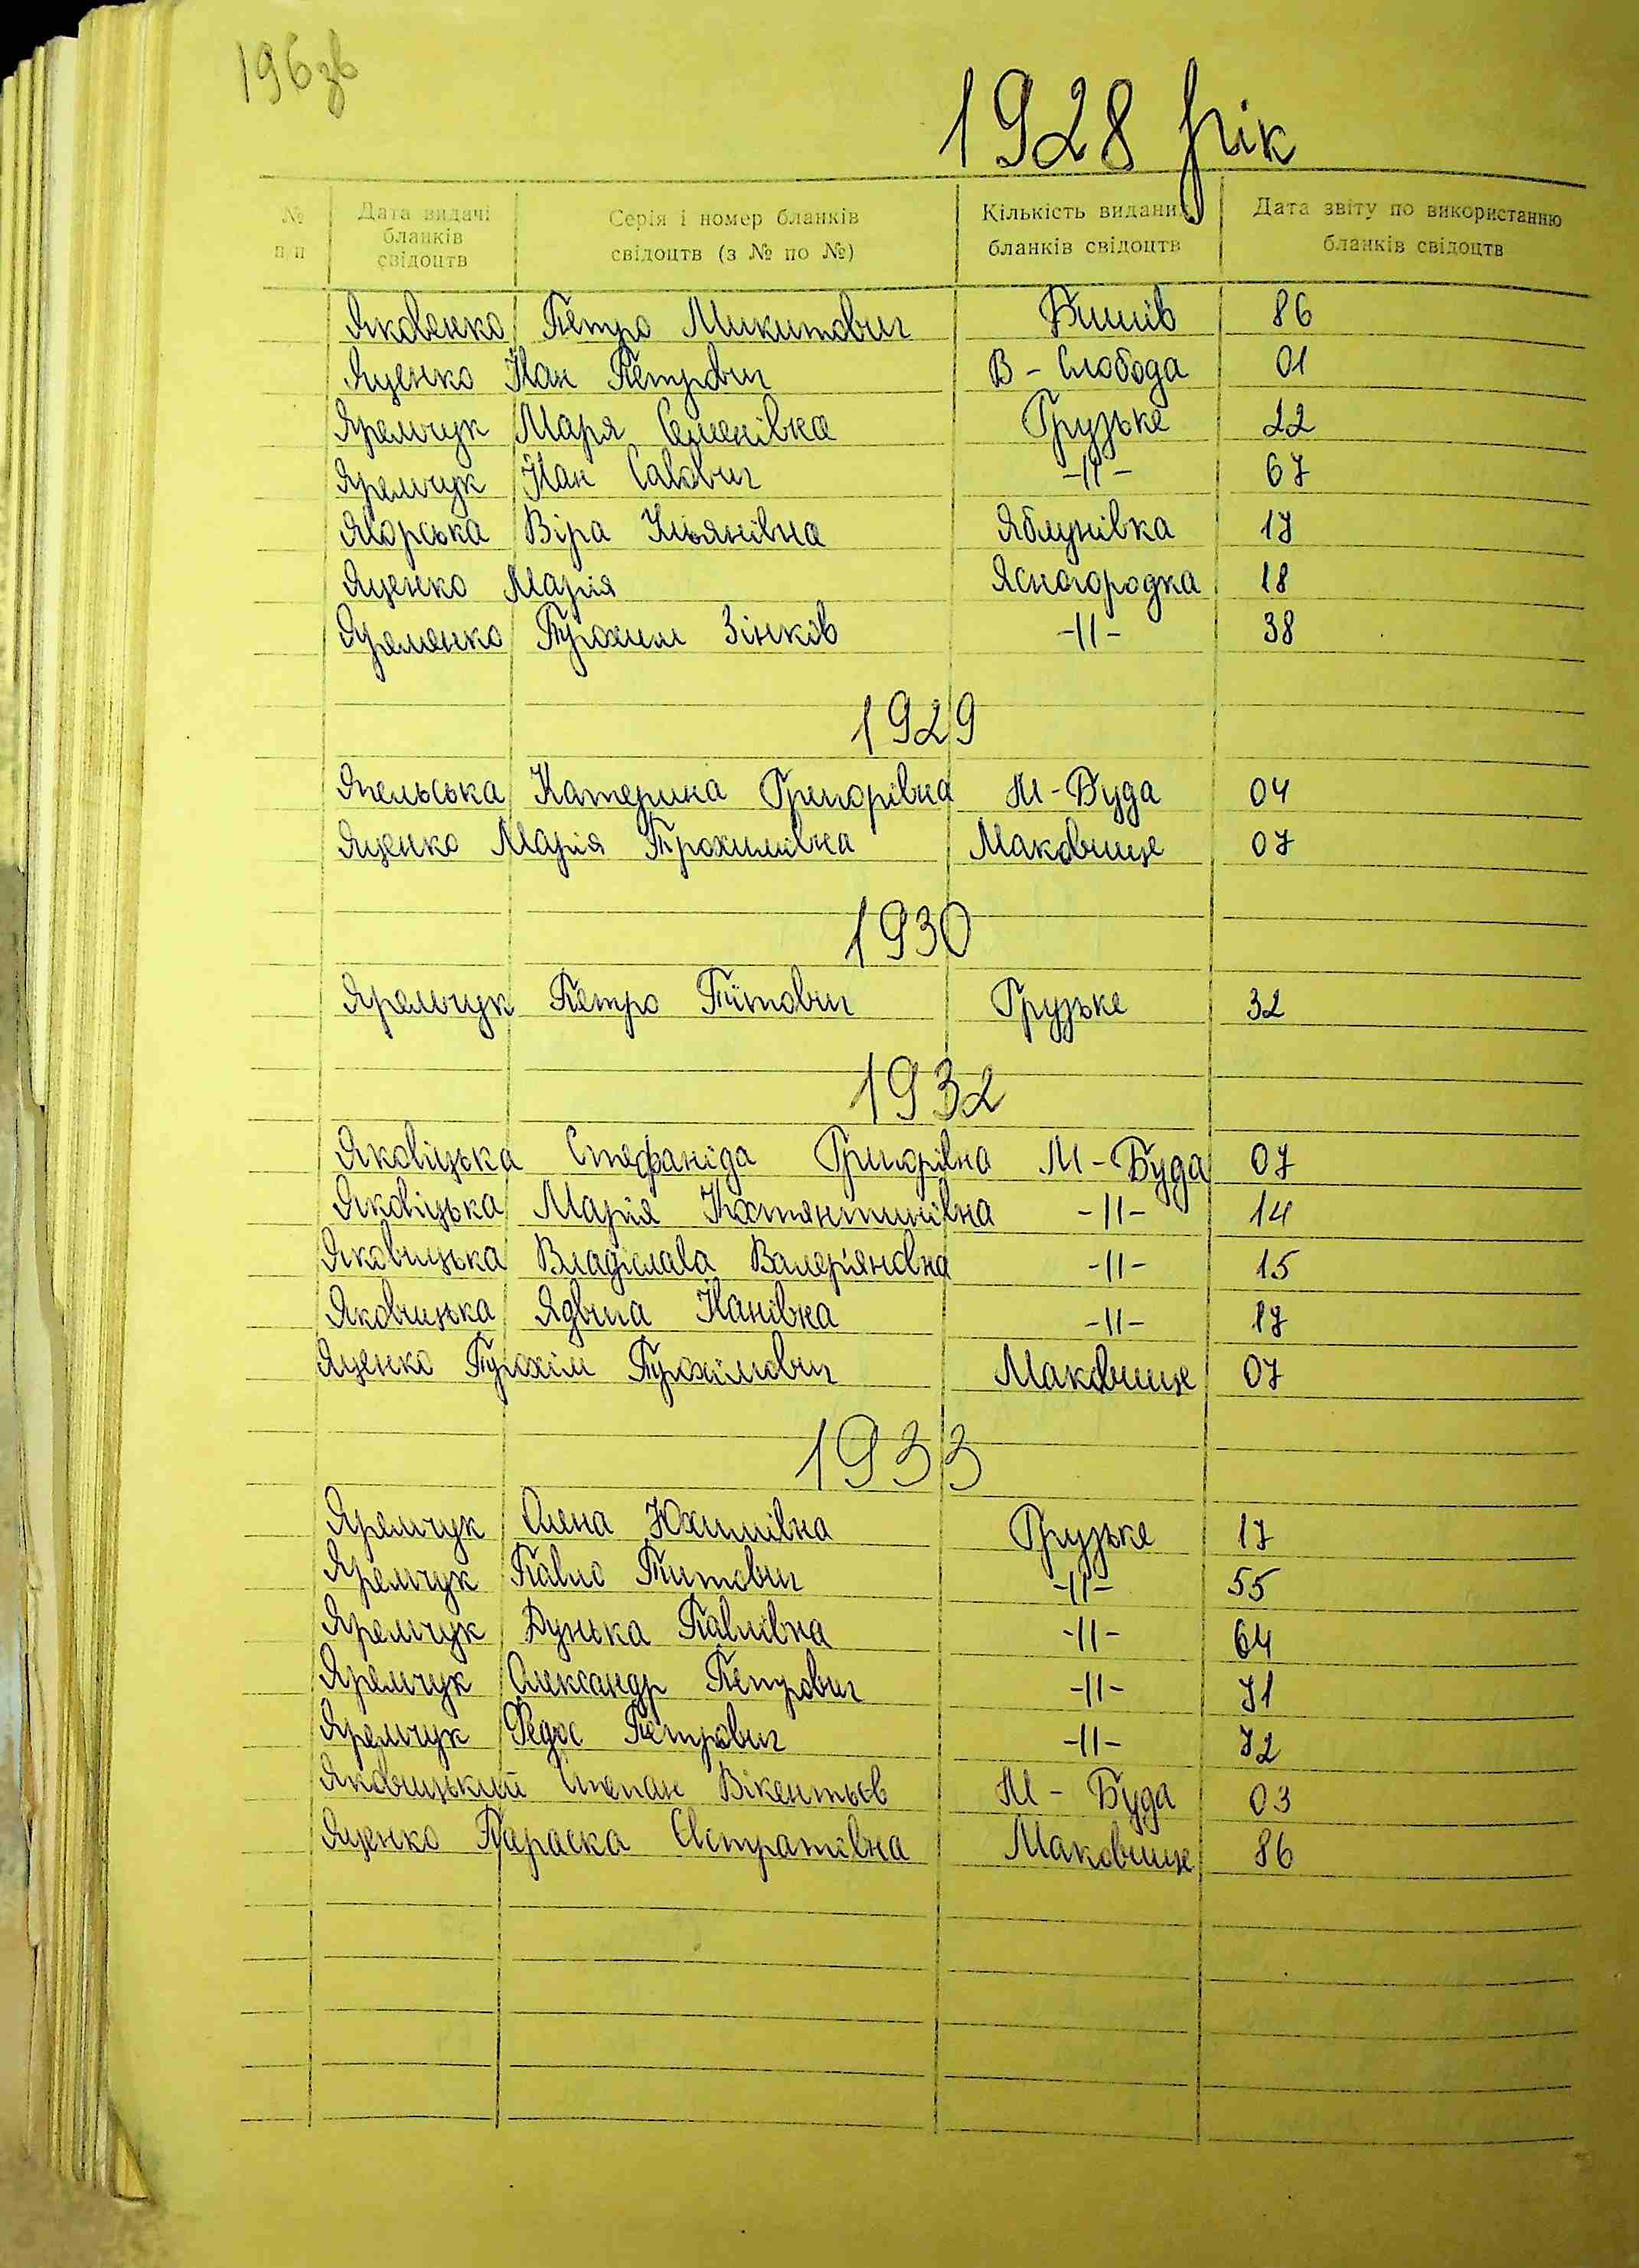 196зв
1928 рік
№ п/п
Дата видачі бланків свідоцтв
Серія і номер бланків свідоцтв (з № по №)
Кількість виданих бланків свідоцтв
Дата звіту по використанню бланків свідоцтв
Яковенко Петро Микитович Бишів 86
Яценко Іван Петрович В-Слобода 01
Яремчук Марія Семенівка Грузьке 22
Яремчук Іван Савович -//- 67
Яворська Віра Ульянівна Яблунівка 17
Яценко Марія Ясногородка 18
Яременко Трохим Зінків -//- 38
1929
Катерина Григорівна М-Буда 04
Яценко Марія Трохимівна Маковище 07
1930
Яремчук Петро Тітович Грузьке 32
1932
Яковіцька Стефаніда Григорівна М-Буда 07
Яковіцька Марія Костянтинівна -//- 14
Яковицька Владіслава Валеріяновна -//- 15
Яковицька Ядвига Іванівна -//- 17
Яценко Трохім Трохімович Маковище 07
1933
Яремчук Олена Юхимівна Грузьке 17
Яремчук Павло Титович -//- 55
Яремчук Дунька Павлівна -//- 64
Яремчук Олександр Петрович -//- 71
Яремчук Федос Петрович -//- 72
Яковицький Степан Вікентьєв М-Буда 03
Яценко Параска Євстратівна Маковище 86